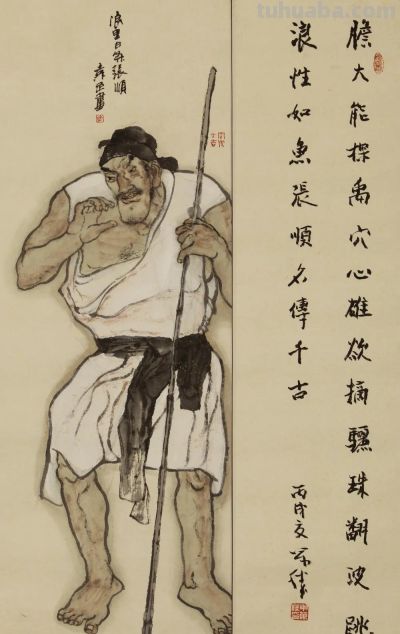 tuhuaba.com
膽大能探禹穴心雄欲摘驪珠翻波跳
浪性如魚張順名傳千古
丙戌夏
浪里白條張順
畫